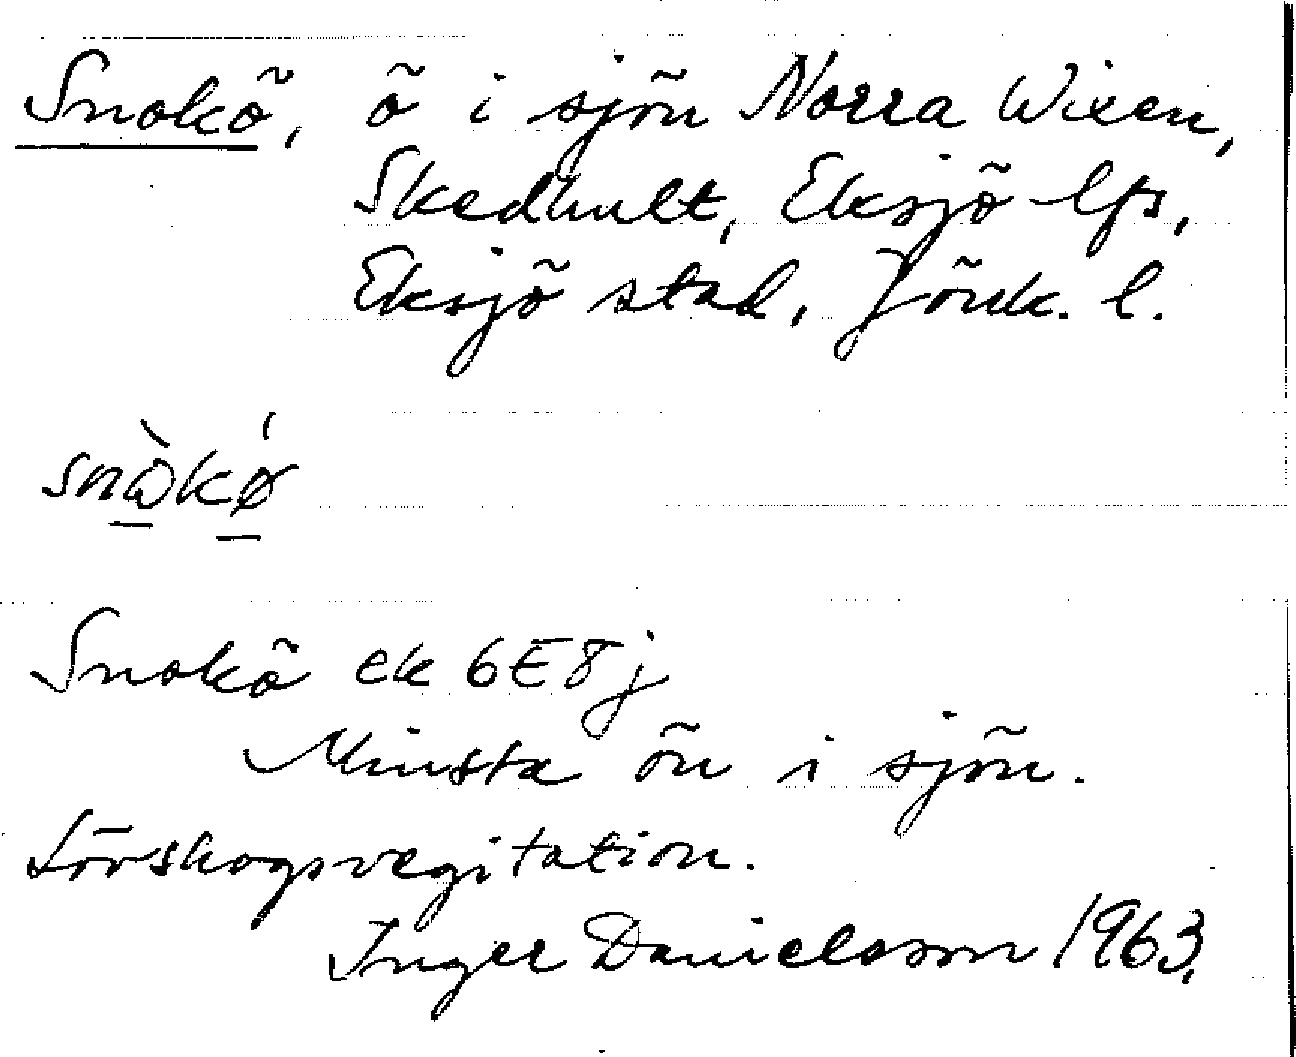 Snokö, ö i sjön Norra Wixen,
Skedhult, Eksjö lfs,
Eksjö stad, Jönk. l.
snὼkǿ
Snokö ek 6E8j
Minsta ön i sjön.
Lövskogsvegitation.
Inger Danielsson 1963.